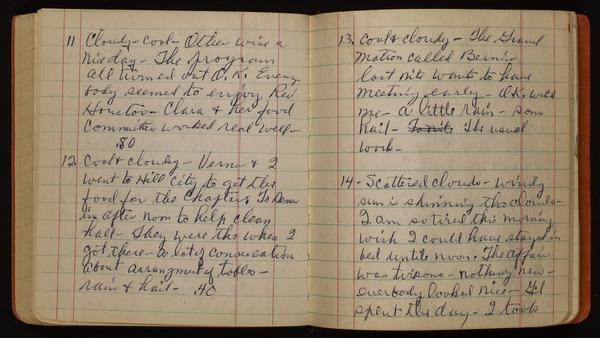 11 Cloudy - cool - Other wise a
nice day - The program
all turned out O.K. Every
body seemed to enjoy Rev
Houston - Clara & her food
Committee worked real well -
.80
12. Cool & cloudy - Verna & I
went to Hill City to get the
food for the Chapter. To
in after noon to help clean
hall - They were thru when I
got there - a lot of conversation
about arrangment of tables -
rain & hail - .40
13. cool & cloudy - The Grand
Matron called Bernice
last nite wants to have
meeting early - O.K. with
me - a little rain - some
hail - The usual
work -
14 - Scattered clouds - windy
sun is shinning thru clouds -
I am so tired this morning
wish I could have stayed in
bed until noon. The affair
was - nothing new -
everybody looked nice -
spent the day - I took